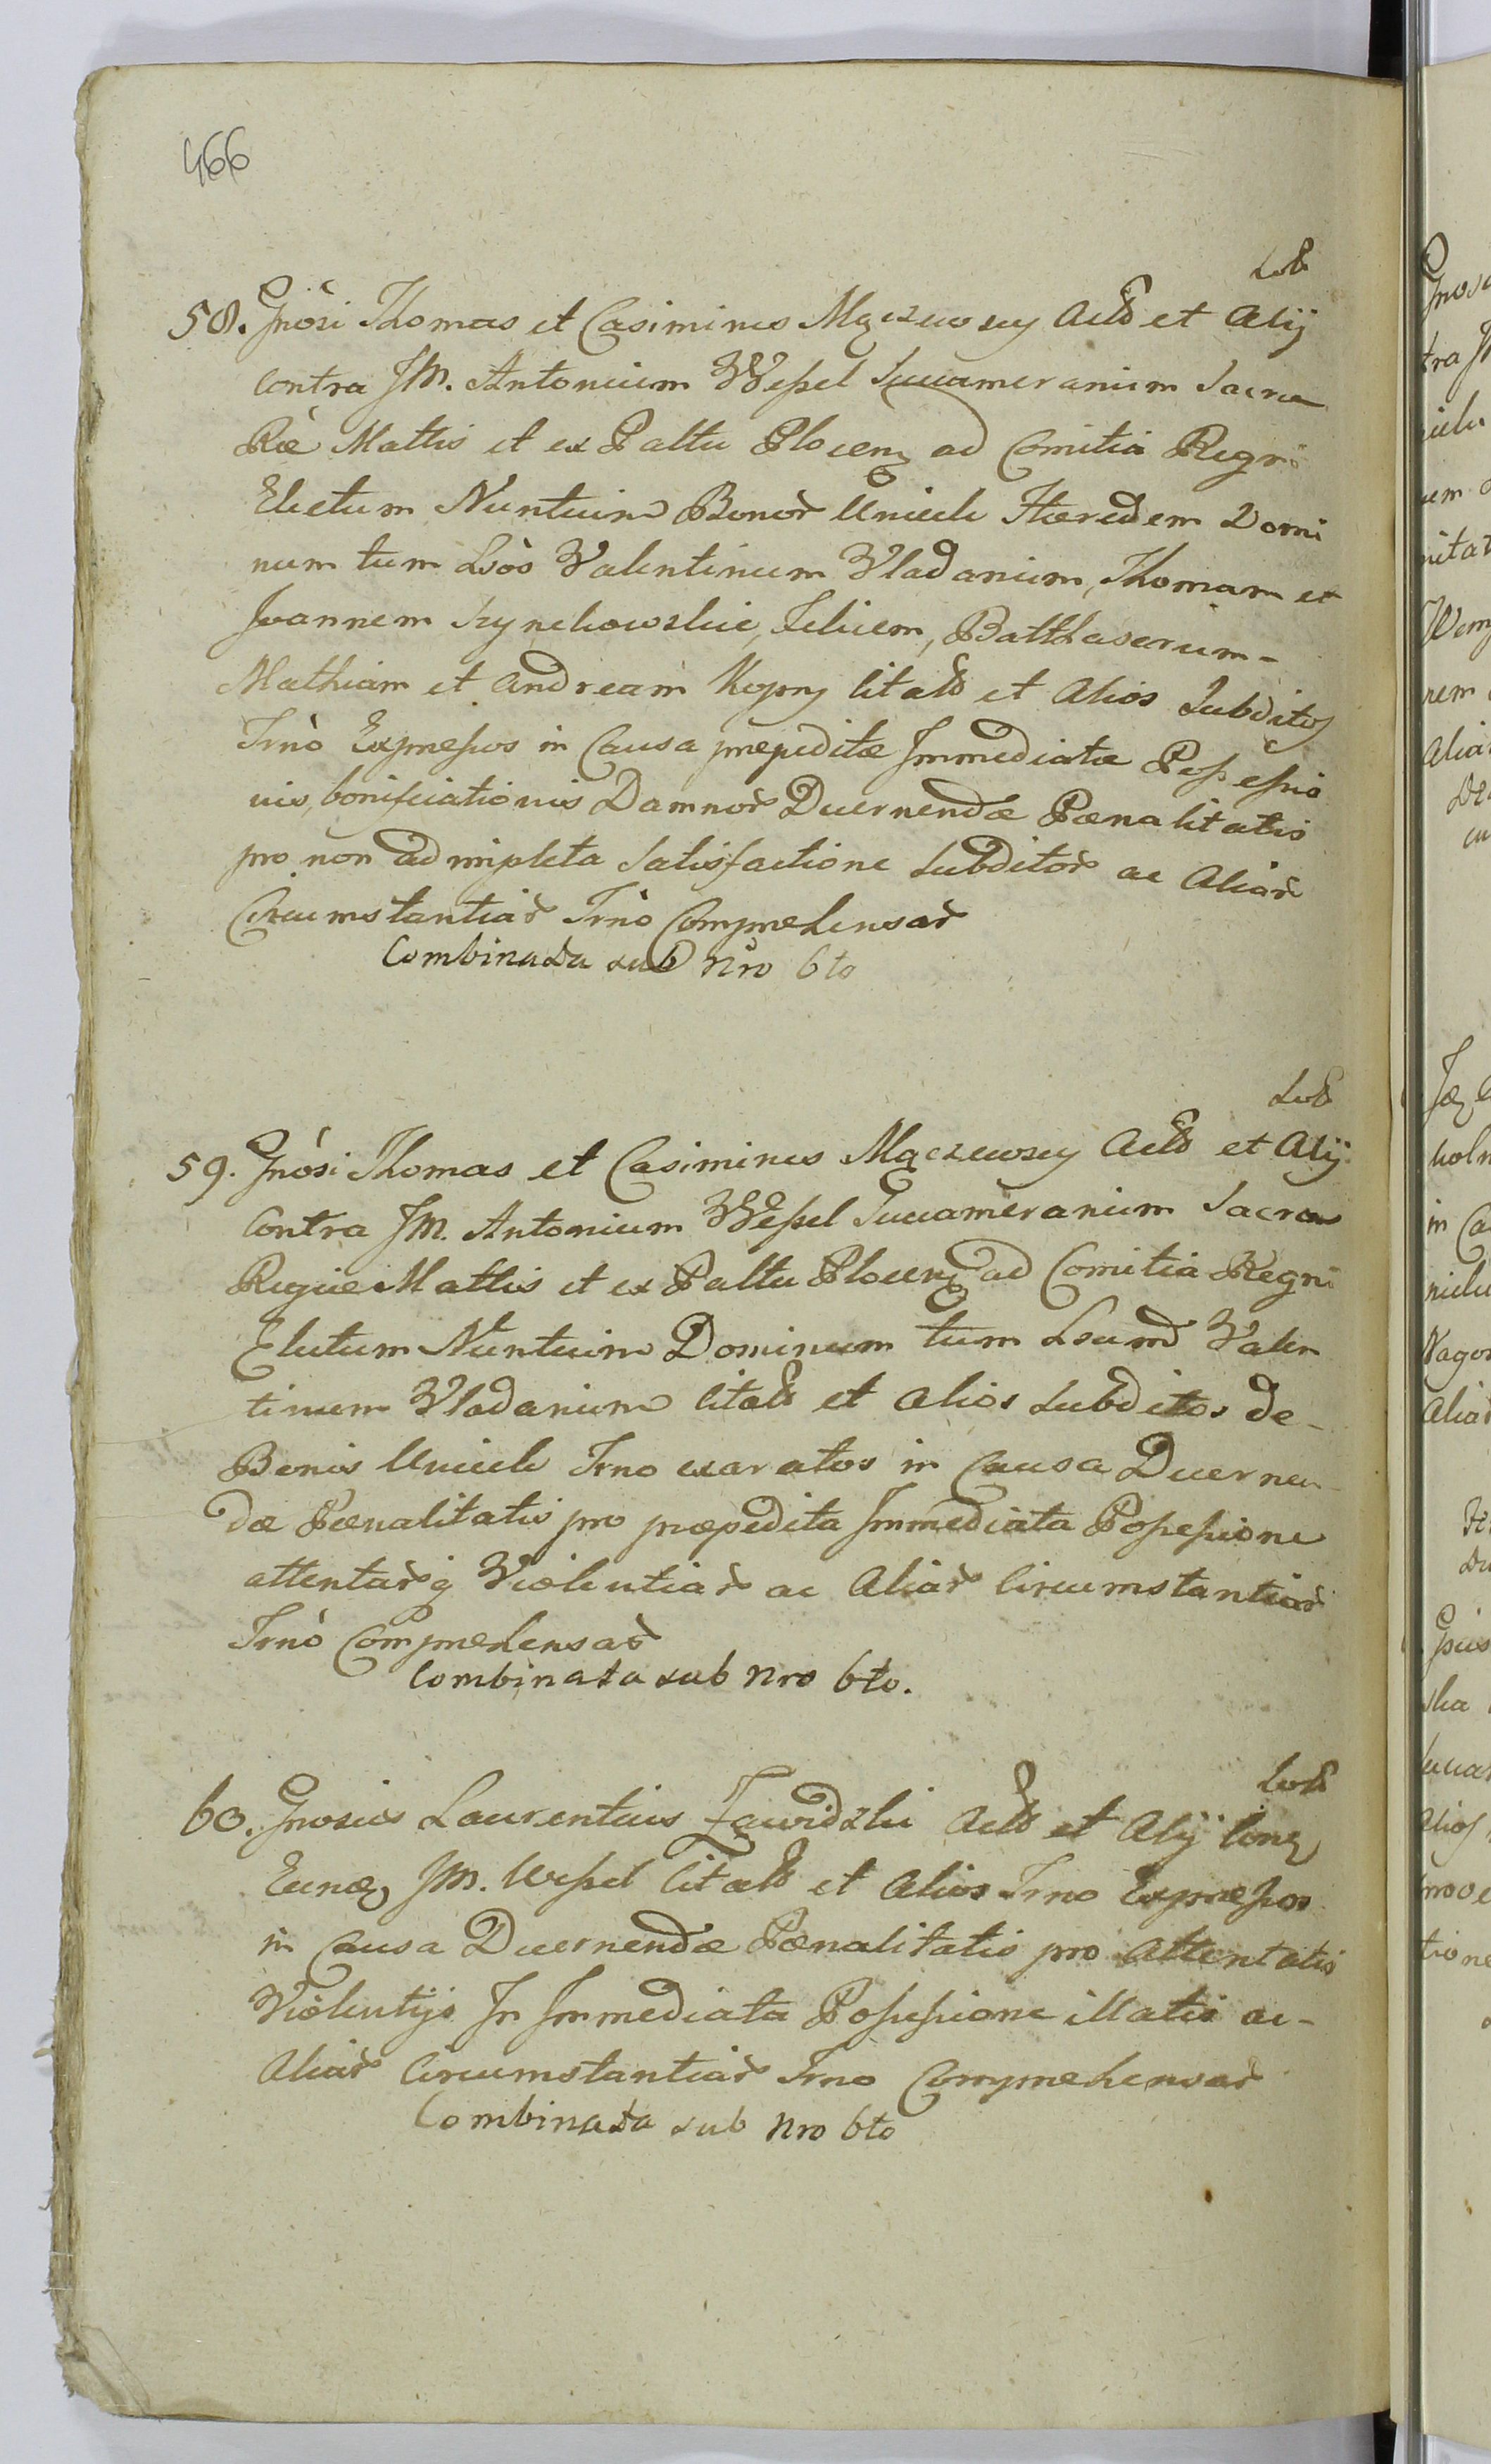 466
Lub
58. Gnosi Thomas et Casimirus Mączewscy Actś et Alij
contra JM. Antonium Wessel Succamerarium Sacræ
Ræ Mattis et ex Paltu Plocenz ad Comitia Regni
Electum Nuntium Bonor Uniecke Hæredem Domi
num tum Lsos Valentinum Vladanium, Thomam et
Joannem Szynchowskie, Felicem, Balthasarum-
Mathiam et Andream citatś et Alios Subditos
Trno Expressos in Causa præpeditæ Immediatæ Possessio
nis, bonificationis Damnor Decernendæ Pænalitatis
pro non adimpleta Satisfactione Subditor ac Aliar
Circumstantiar Trno Compræhensar
Combinata sub Nro 6to
Lub
59. Gnosi Thomas et Casimirus Mączewscy Actś et Alij
Contra JM. Antonium Wessel Succamerarium Sacræ
Regiæ Mattis et ex Paltu Plocenz ad Comitia Regni
Electum Nuntium Dominum tum Lsum Valen
tinum Vladanium citatś et Alios Subditos de-
Bonis Uniecke Trno exaratos in Causa Decernen
dæ Pænalitatis pro præpedita Immediata Possessione
attentarq Violentiar ac Aliar Circumstantiar
Trno Compræhensar
Combinata sub Nro 6to.
Lub
60. Gnosus Laurentius Zawidzki Actś et Alij Conz
Eund JM. Wessel Citatś et Alios Trno Expressos
in Causa Decernendæ Pænalitatis pro Attentatis
Violentijs In Immediata Possessione illatis ac-
Aliar Circumstantiar Trno Compræhensar
Combinata sub Nro 6to